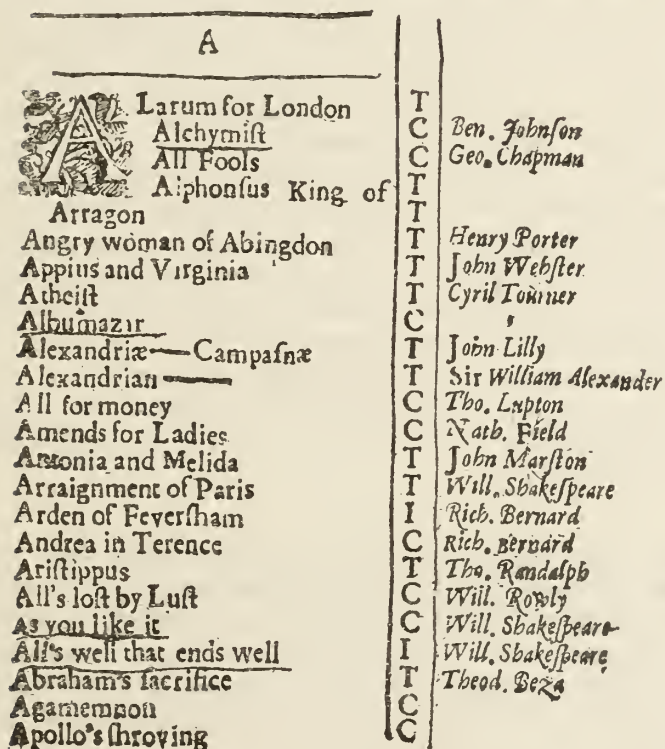 A
ALarum for London T
Alchymiſt C Ben. Johnſon
All Fools C Geo. Chapman
Alphonſus King of T
Arragon T
Angry woman of Abingdon T Henry Porter
Appius and Virginia T John Webſter
Atheiſt T Cyril Tourner
Albumazir C
Alexandriæ — Campaſnæ T John Lilly
Alexandrian — T Sir William Alexander
All for money C Tho. Lupton
Amends for Ladies C Nath. Field
Antonia and Melida T John Marſton
Arraignment of Paris T Will. Shakeſpeare
Arden of Feverſham I Rich. Bernard
Andrea in Terence C Rich. Bernard
Ariſtippus T Tho. Randalph
All's loſt by Luſt C Will. Rowly
As you like it C Will. Shakeſpeare
All's well that ends well I Will. Shakeſpeare
Abraham's ſacrifice T Theod. Beza
Agamemnon C
Apollo's ſhroving C